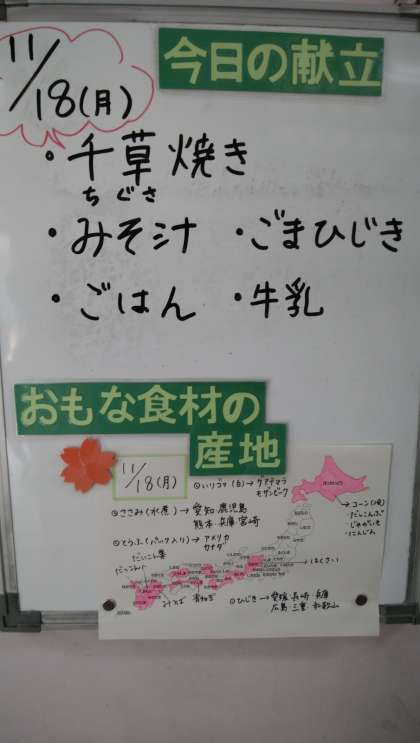 11/18(月)
今日の献立
・千草焼き
ちぐさ
・みそ汁 ・ごまひじき
・ごはん ・牛乳
おもな食材の
産地
11/18(月)
いりゴマ(白)→グアテマラ
モザンビーク
ささみ(水煮)→愛知 鹿児島
熊本 兵庫 宮崎
とうふ(パック入り)→アメリカ
カナダ
→コーン(冷)
じゃがいも
にんじん
はくさい
みつば
ひじき→愛媛 長崎 兵庫
広島 三重 和歌山